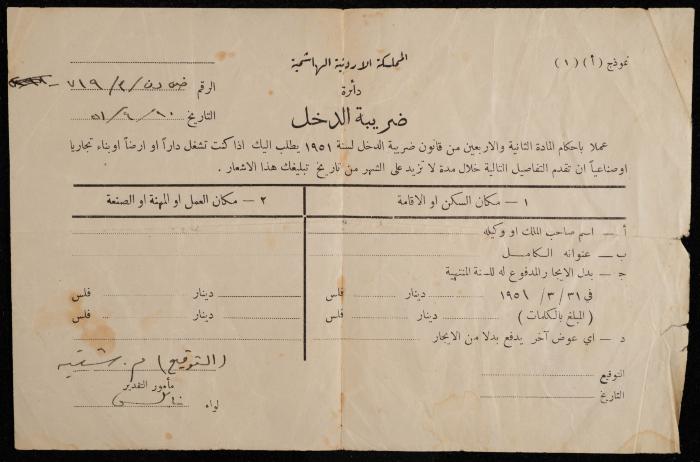 نموذج (أ) (١)
المملكة الاردنية الهاشمية
دائرة
ضريبة الدخل
الرقم ض دن / ٢ / ٧١٩
التاريخ
عملا باحكام المادة الثانية والاربعين من قانون ضريبة الدخل لسنة ١٩٥١ يطلب اليك اذا كنت تشغل داراً او ارضاً اوبناء تجاريا
اوصناعياً ان تقدم التفاصيل التالية خلال مدة لا تزيد على الشهر من تاريخ تبليغك هذا الاشعار .
١ — مكان السكن او الاقامة
٢ — مكان العمل او المهنة او الصنعة
أ — اسم صاحب الملك او وكيله
ب — عنوانه الكامل
ج — بدل الايجار المدفوع له للسنة المنتهية
في ٣١ / ٣ / ١٩٥١ دينار فلس دينار فلس
( المبلغ بالكلمات ) دينار فلس دينار فلس
د — اي عوض آخر يدفع بدلا من الايجار
(التوقيع) م. شتيه
مأمور التقدير
لواء نابلس
التوقيع
التاريخ